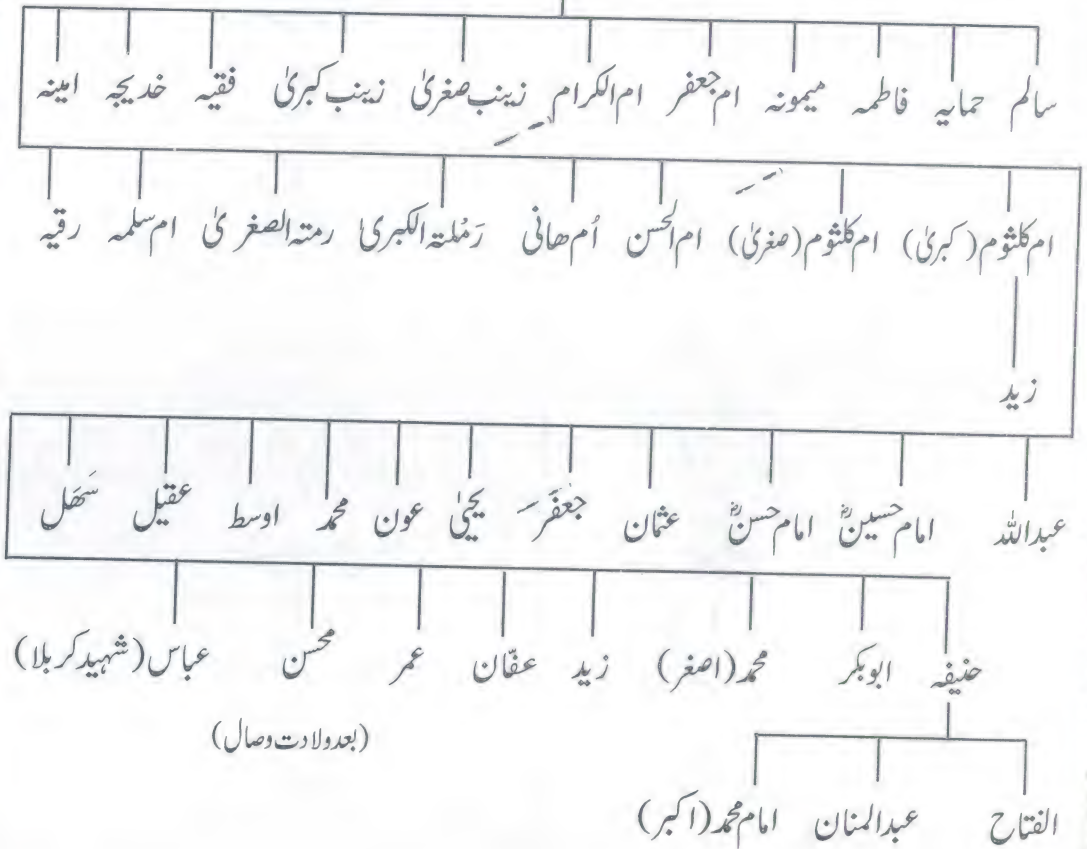 سالم حمایہ فاطمہ میمونہ ام جعفر ام الکرام زینب صغریٰ زینب کبریٰ فقیہ خدیجہ امینہ
ام کلثوم (کبریٰ) ام کلثوم (صغریٰ) ام الحسن اُم ھانی رَمُلتہ الکبریٰ رمتہ الصغریٰ ام سلمہ رقیہ
زید
عبداللہ امام حسینؓ امام حسنؓ عثمان جعفر یحییٰ عون محمد اوسط عقیل سَھَل
حنیفہ ابوبکر محمد (اصغر) زید عفّان عمر محسن عباس (شہید کربلا)
(بعد ولادت وصال)
الفتاح عبدالمنان امام محمد (اکبر)